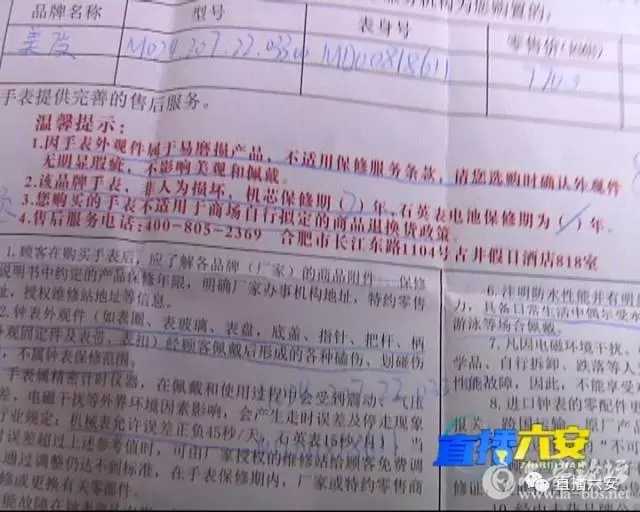 品牌名称 型号 表身号 零售价(标价)
美度 M024.207.22.033.00 MD00818611
手表提供完善的售后服务。
温馨提示：
1.因手表外观件属于易磨损产品，不适用保修服务条款，请您选购时确认外观件
无明显瑕疵，不影响美观和佩戴。
2.该品牌手表，非人为损坏，机芯保修期(2)年，石英表电池保修期为(/)年。
3.您购买的手表不适用于商场自行拟定的商品退换货政策。
4.售后服务电话:400-805-2369 合肥市长江东路1104号古井假日酒店818室
1.顾客在购买手表后，应了解各品牌（厂家）的商品附件
保修
说明书中约定的产品保修年限，明确厂家办事机构地址，特约零售
址，授权维修站地址等信息。
2.钟表外观件（如表圈、表玻璃、表盘，底盖、指针、把杆、柄
外观固定件及表带，表扣）经顾客佩戴后形成的各种磕伤、划碰伤
，不属钟表保修范围。
手表属精密计时仪器，在佩戴和使用过程中会受到震动、气压
差，电磁干扰等外界环境因素影响，会产生走时误差及停走现象
行业规定，机械表允许误差正负45秒/天，石英表15秒/月）
时误差超过上述参考值时，可由厂家授权的维修站给顾客免费调
通过调整仍达不到标准，在手表保修期内，厂家或特约零售商
修或更换有关零部件。
6.注明防水性能并有明
力，具备日常生活中偶尔受水
游泳等场合佩戴。
7.凡因电磁环境干扰、
学品、自行拆卸、跌落等人
性能故障，因此，不能享受
8.进口钟表的零配件
直播六安
ZHIBOLUAN
直播六安
www.la-bbs.net